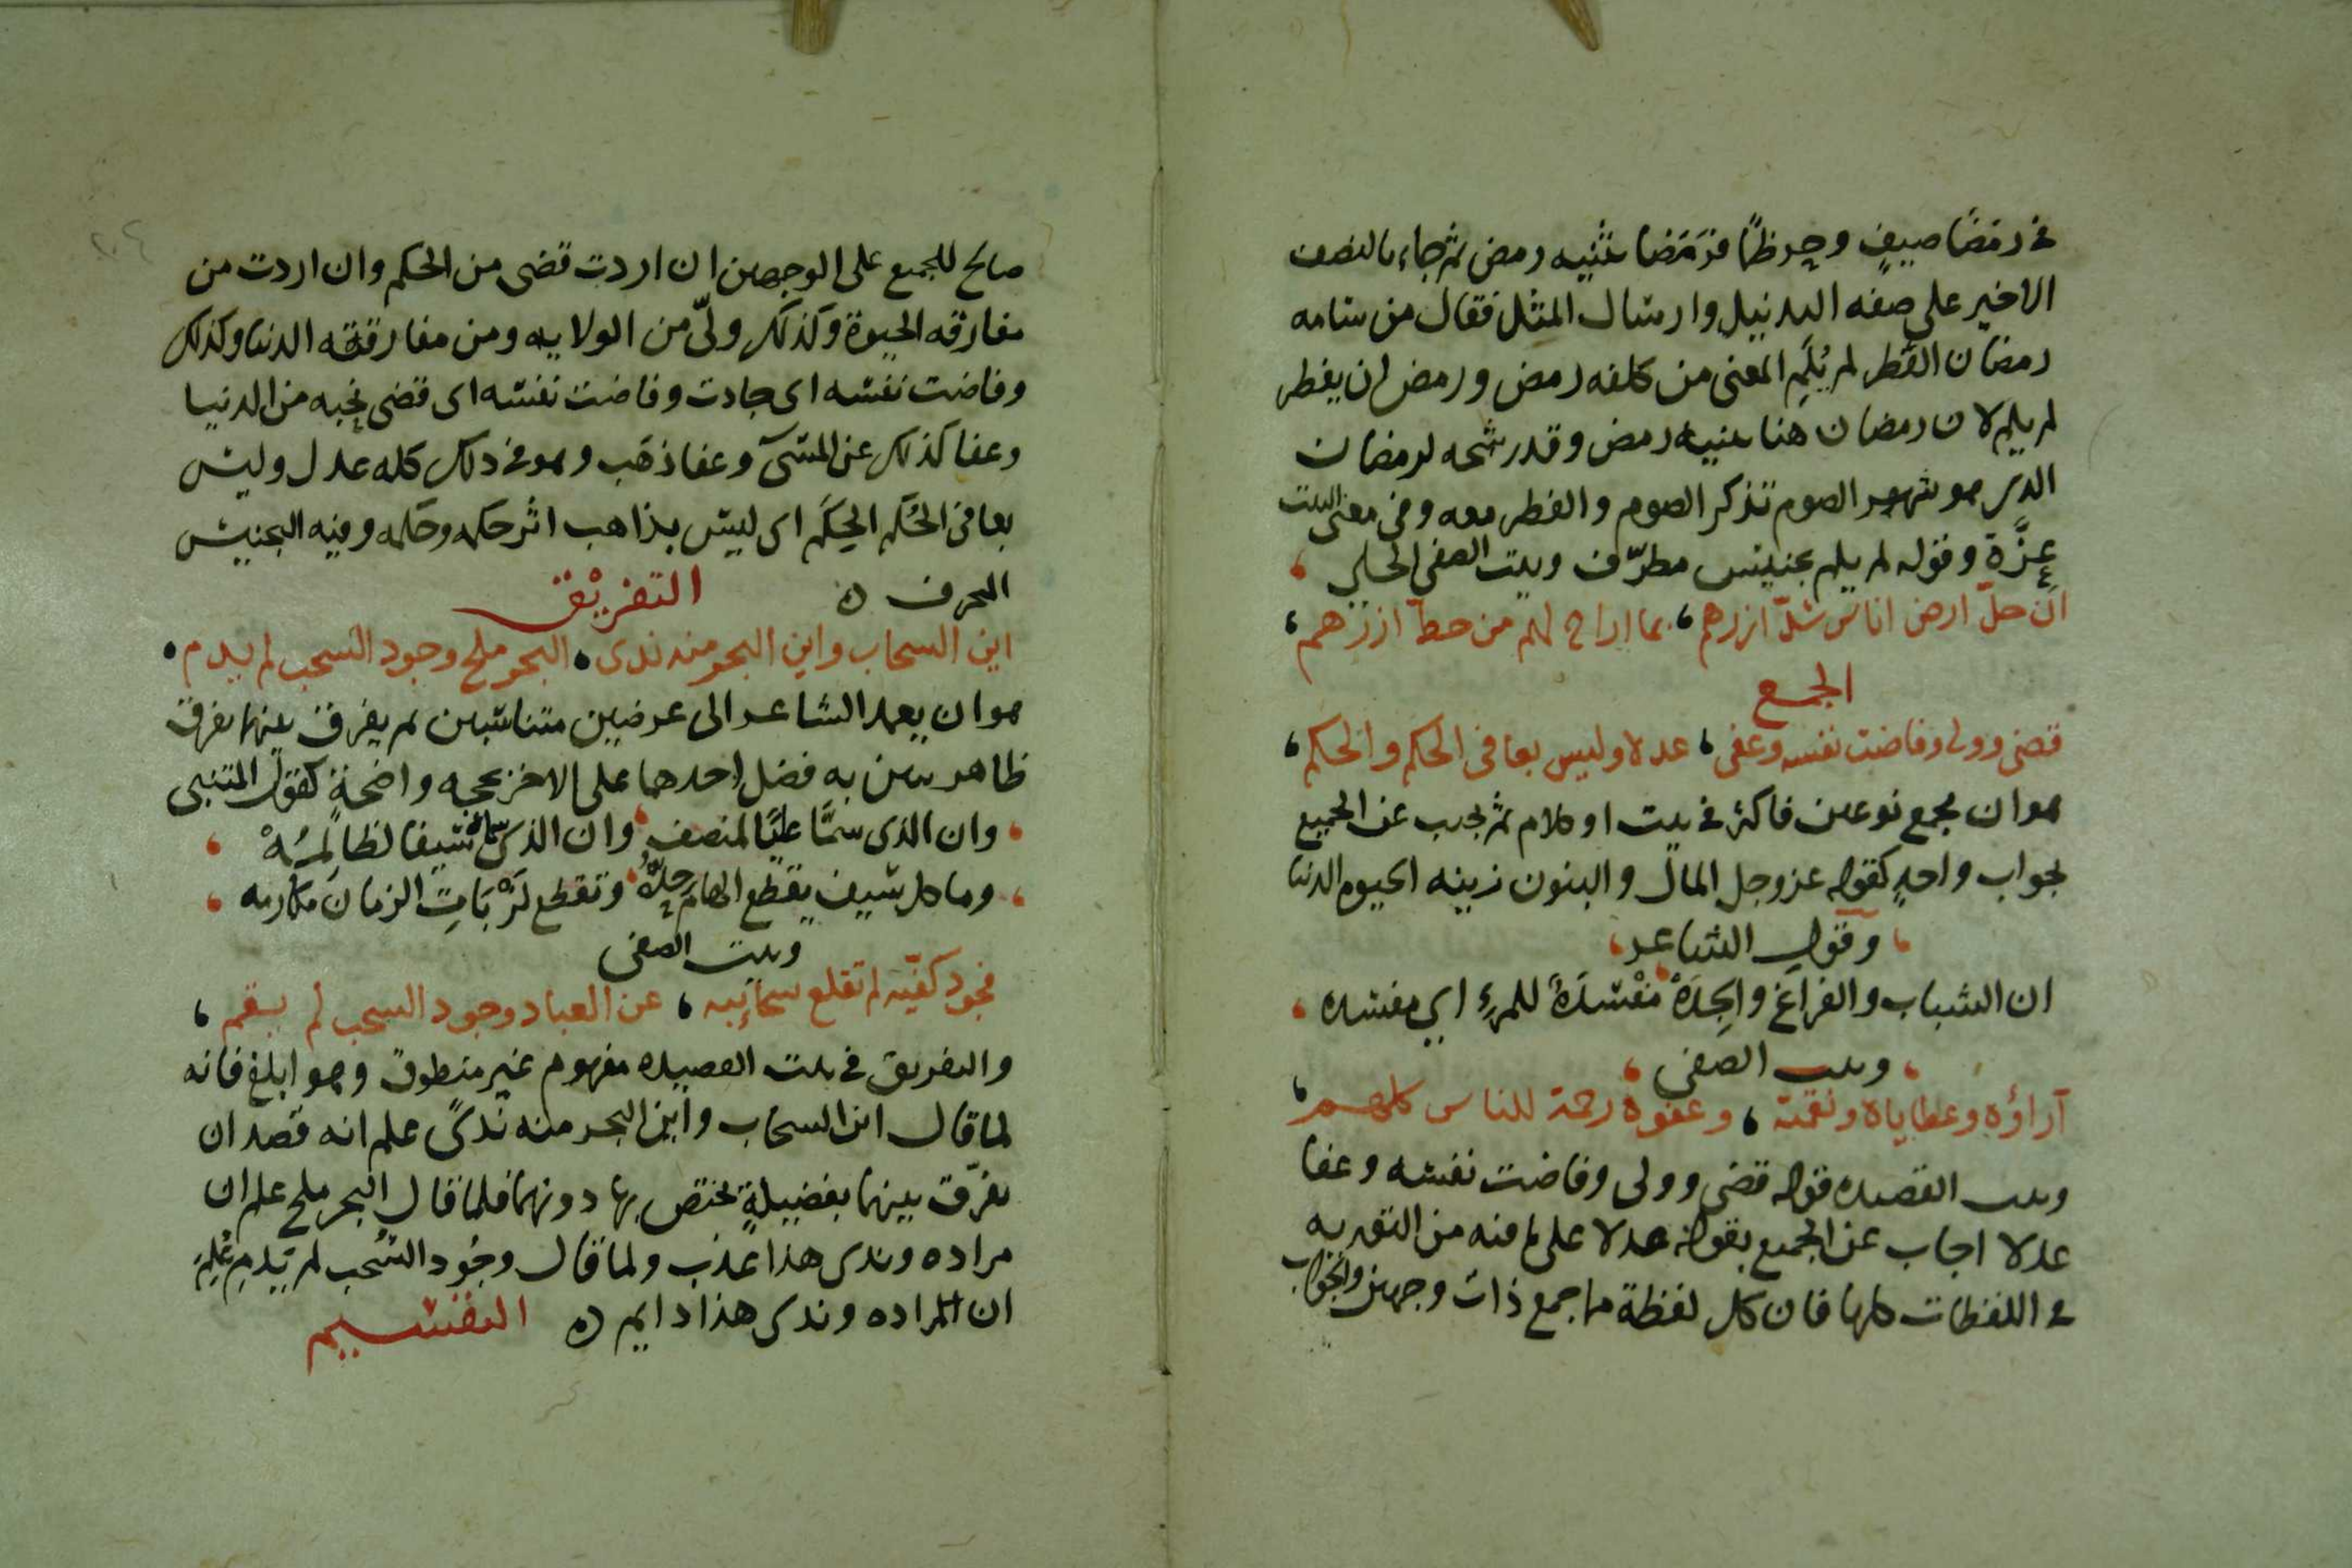 في رمضا صيف وحر ظمًا فرمضا تثنيه رمض ثم جاء بالنصف
الاخير على صفه التذييل وارسال المثل فقال من سامه
رمضان الفطر لم يُلَمِ المعنى من كلفه رمض ورمض ان يفطر
لم يلم لان رمضان هنا تثنيه رمض وقد رشحه لرمضان
الذي هو شهر الصوم تذكر الصوم والفطر معه وفي معنى البيت
عزَّة وقوله لم يلم تجنيس مطرّف وبيت الصفي الحلي
ان حلّ ارض اناس شدّ ازرهم، بما اباح لهم من حطّ ازرهم،
الجمع
قضى وولى وفاضت نفسه وعفى، عدلا وليس بعافى الحكم والحكم،
هو ان يجمع نوعين فاكثر في بيت او كلام ثم يجيب عن الجميع
بجواب واحدٍ كقوله عز وجل المال والبنون زينه الحيوه الدنيا
وقول الشاعر
ان الشباب والفراغ والجِدَهْ مَفْسَدَةٌ للمرءِ اي مفسده
وبيت الصفي
آراؤه وعطاياه ونقمته، وعفوه رحمة للناس كلهم
وبيت القصيده قوله قضى وولى وفاضت نفسه وعفا
عدلا اجاب عن الجميع بقوله عدلا على ما فيه من التوريه
في اللفظات كلها فان كل لفظة مما جمع ذات وجهين والجواب
صالح للجمع على الوجهين ان اردت قضى من الحكم وان اردت من
مفارقه الحيوة وكذلك ولّى من الولايه ومن مفارقته الدنيا وكذلك
وفاضت نفسه اى جادت وفاضت نفسه اى قضى نحبه من الدنيا
وعفا كذلك عن المسىء وعفا ذهَب وهو في ذلك كله عدل وليس
بعافى الحُكْم الحِكَم اى ليس بذاهب اثر حكمه وحكمه وفيه التجنيس
المحرف ه التفريق
اين السحاب واين البحر منه ندى، البحر ملح وجود السحب لم يدم
هو ان يعمد الشاعر الى عرضيين متناسبين لم يفرق بينهما بفرق
ظاهر يتبين به فضل احدهما على الاخر بحجه واضحةٍ كقول المتنبى
وان الذى سمَّا عليًّا لمنصف وان الذى سماه سيفا لظالِمُهْ
وما كل سيف يقطع الهامَ حدُّهُ وتقطع لَزْبَاتِ الزمان مكارمه
وبيت الصفي
فجود كفّيه لم تقلع سحائبه، عن العباد وجود السحب لم يقم
والتفريق في بيت القصيده مفهوم غير منطوق وهو ابلغ فانه
لما قال اين السحاب واين البحر منه ندًى علم انه قصد ان
يفرّق بينهما بفضيلةٍ يختص بها دونهما فلما قال البحر ملح علم ان
مراده وندى هذا عذب ولما قال وجُود السُحب لم يَدُمِ عُلِمَ
ان المراده وندى هذا دايم ه التقسيم